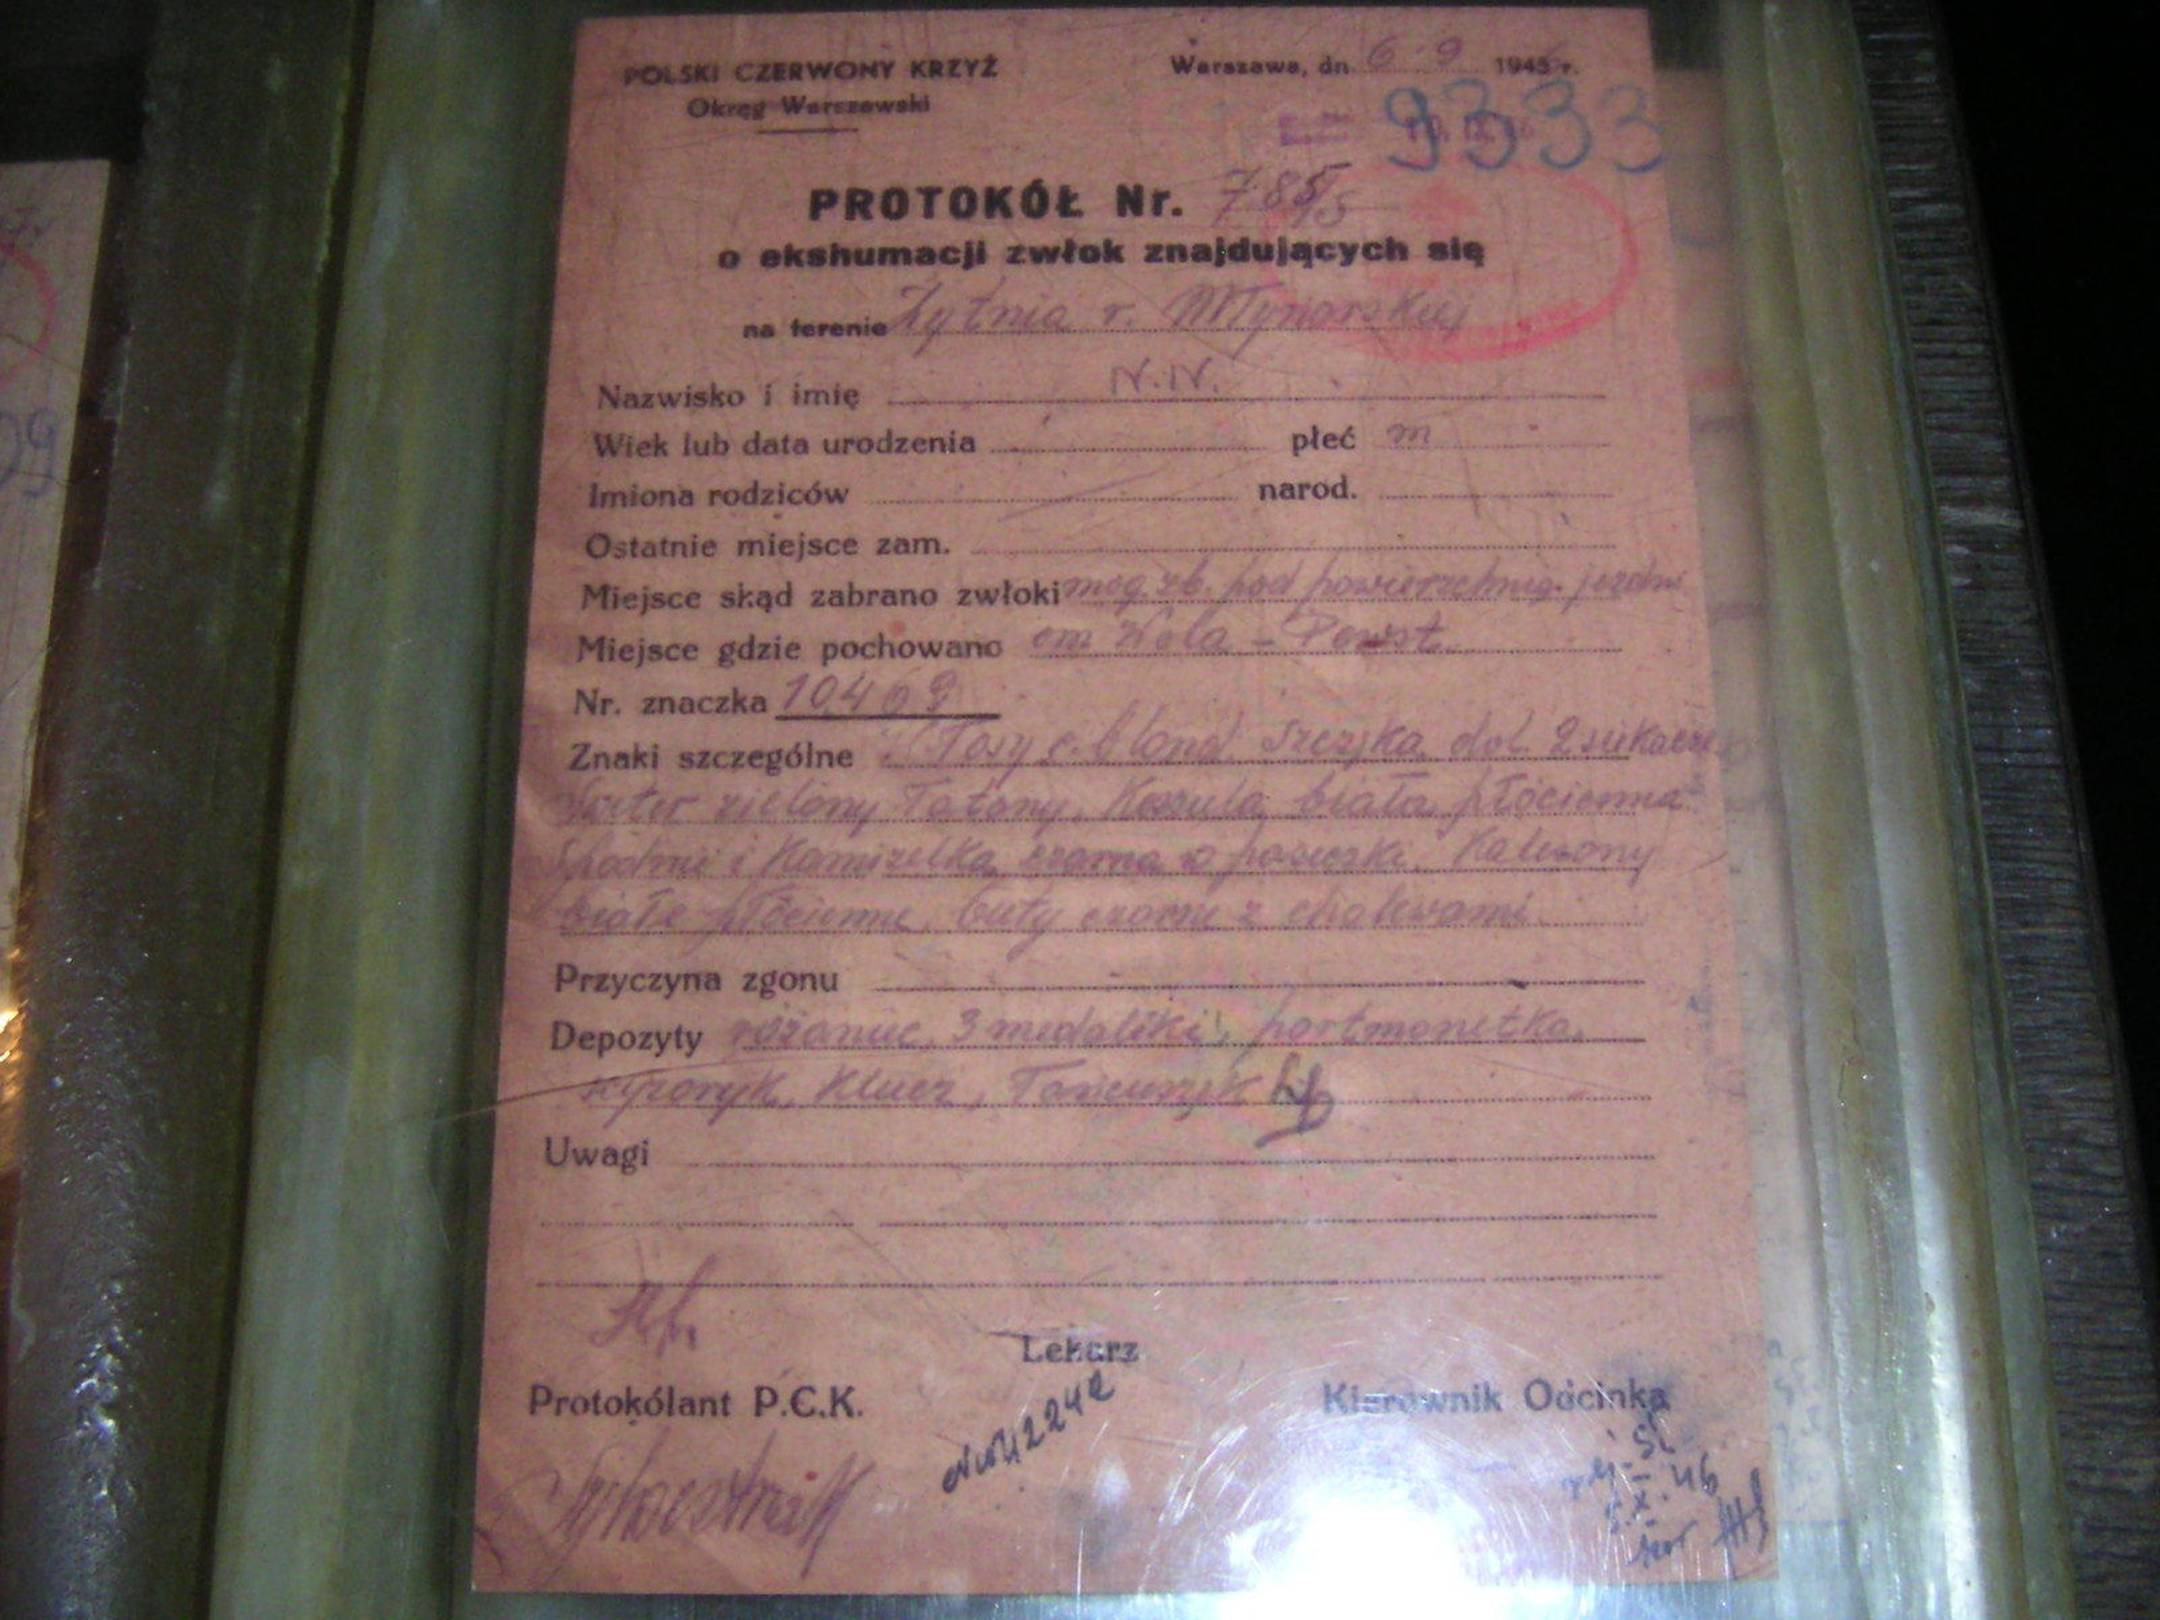 POLSKI CZERWONY KRZYŻ
Okręg Warszawski
Warszawa, dn. 6-9 1945 r.
9333
PROTOKÓŁ Nr. 785/5
o ekshumacji zwłok znajdujących się
na terenie Żytnia r. Młynarskiej
Nazwisko i imię N.N.
Wiek lub data urodzenia płeć m
Imiona rodziców narod.
Ostatnie miejsce zam.
Miejsce skąd zabrano zwłoki mog. zb. pod powierzchnią jezdni
Miejsce gdzie pochowano cm Wola - Powst.
Nr. znaczka 10469
Znaki szczególne włosy c. blond szczęka dol. 2
Sweter zielony Koszula biała płócienna
Spodnie i Kamizelka czarna w paseczki. Kalesony
białe płócienne, buty czarne z cholewami
Przyczyna zgonu
Depozyty różaniec, 3 medaliki, portmonetka,
scyzoryk, klucz, łańcuszek
Uwagi
Lekarz
Protokólant P.C.K.
Kierownik Odcinka